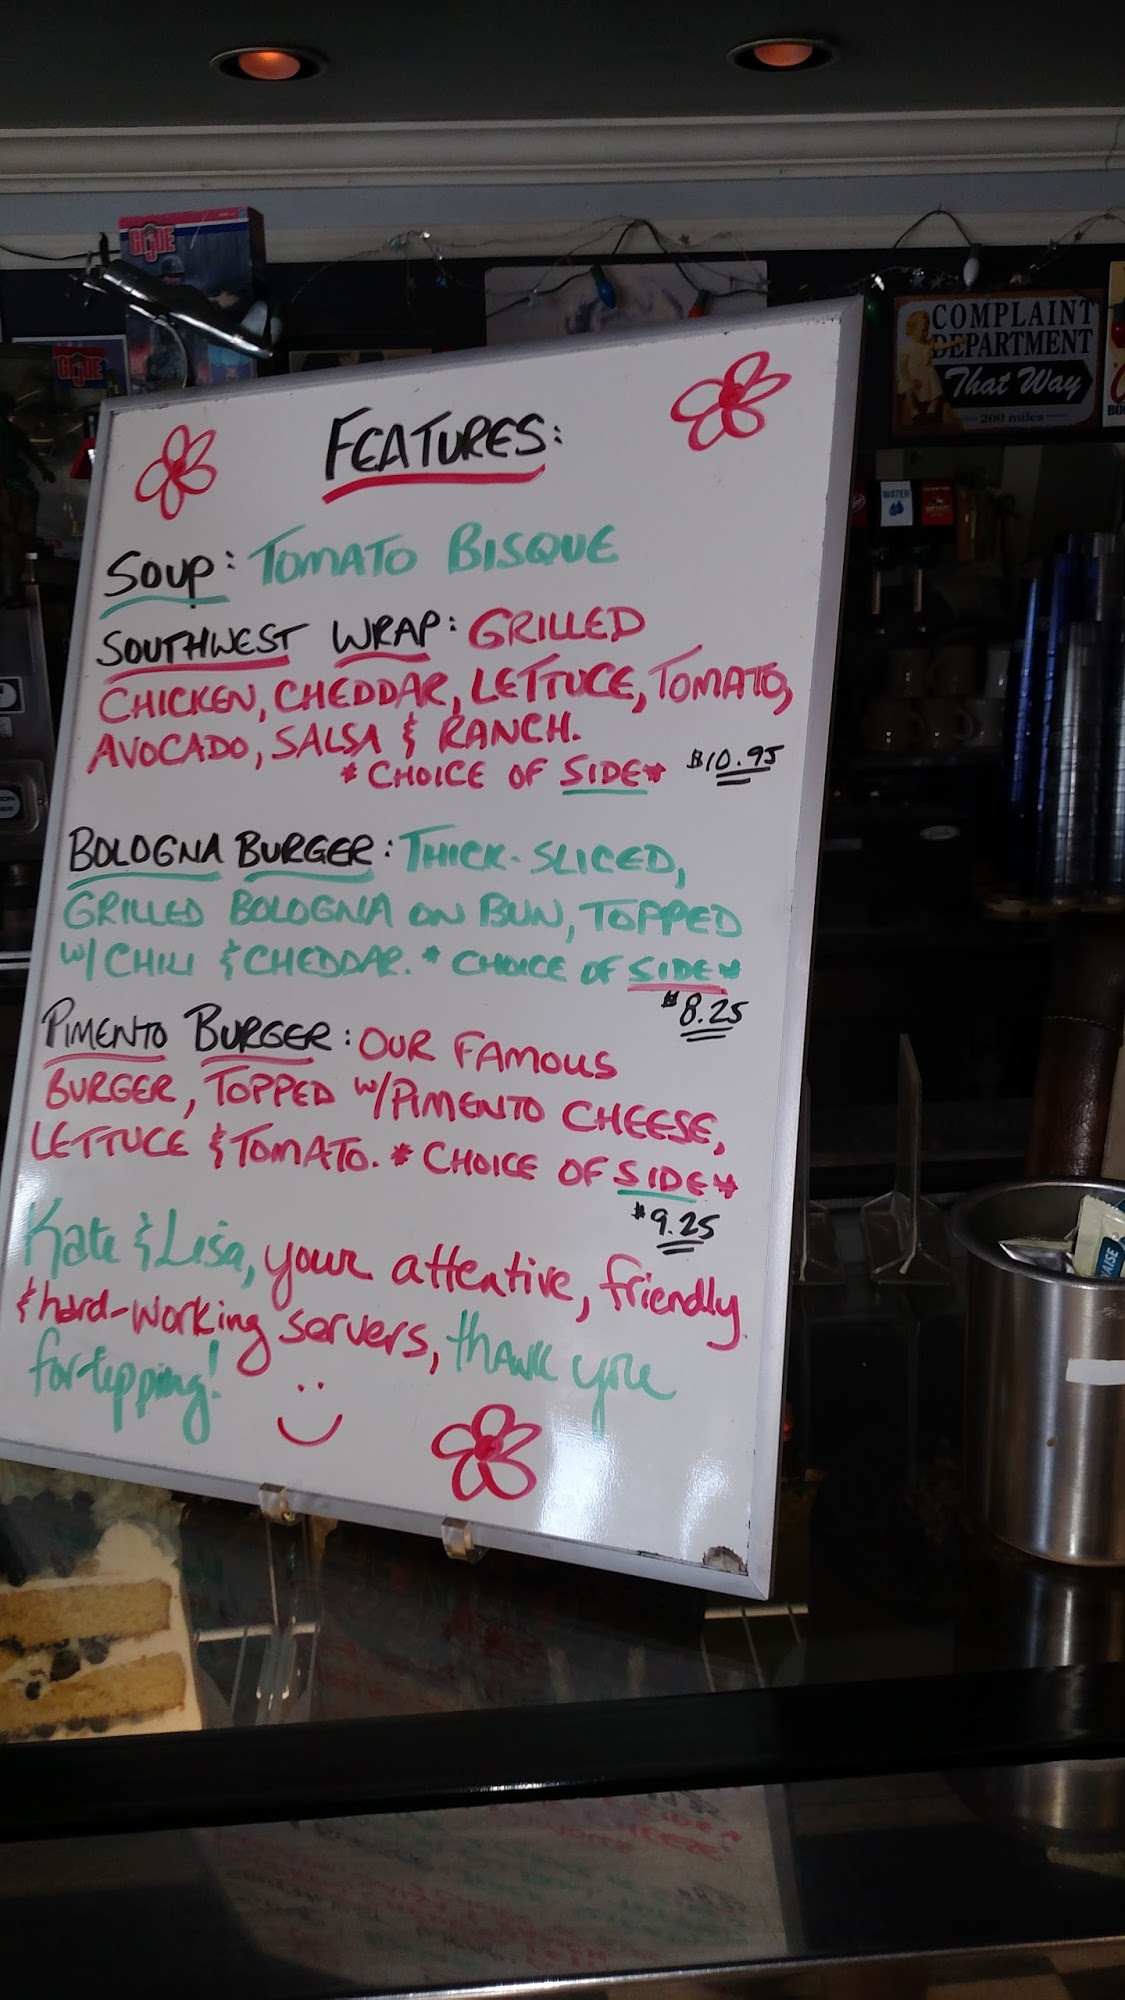 GIJOE
GIJOE
COMPLAINT
DEPARTMENT
That Way
200 miles
WATER
FEATURES:
SOUP: TOMATO BISQUE
SOUTHWEST WRAP: GRILLED
CHICKEN, CHEDDAR, LETTUCE, TOMATO,
AVOCADO, SALSA & RANCH.
*CHOICE OF SIDE* $10.95
BOLOGNA BURGER: THICK-SLICED,
GRILLED BOLOGNA ON BUN, TOPPED
W/ CHILI & CHEDDAR. * CHOICE OF SIDE*
$8.25
PIMENTO BURGER: OUR FAMOUS
BURGER, TOPPED W/PIMENTO CHEESE,
LETTUCE & TOMATO. * CHOICE OF SIDE*
$9.25
Kate & Lisa, your attentive, friendly
& hard-working servers, thank you
for tipping!